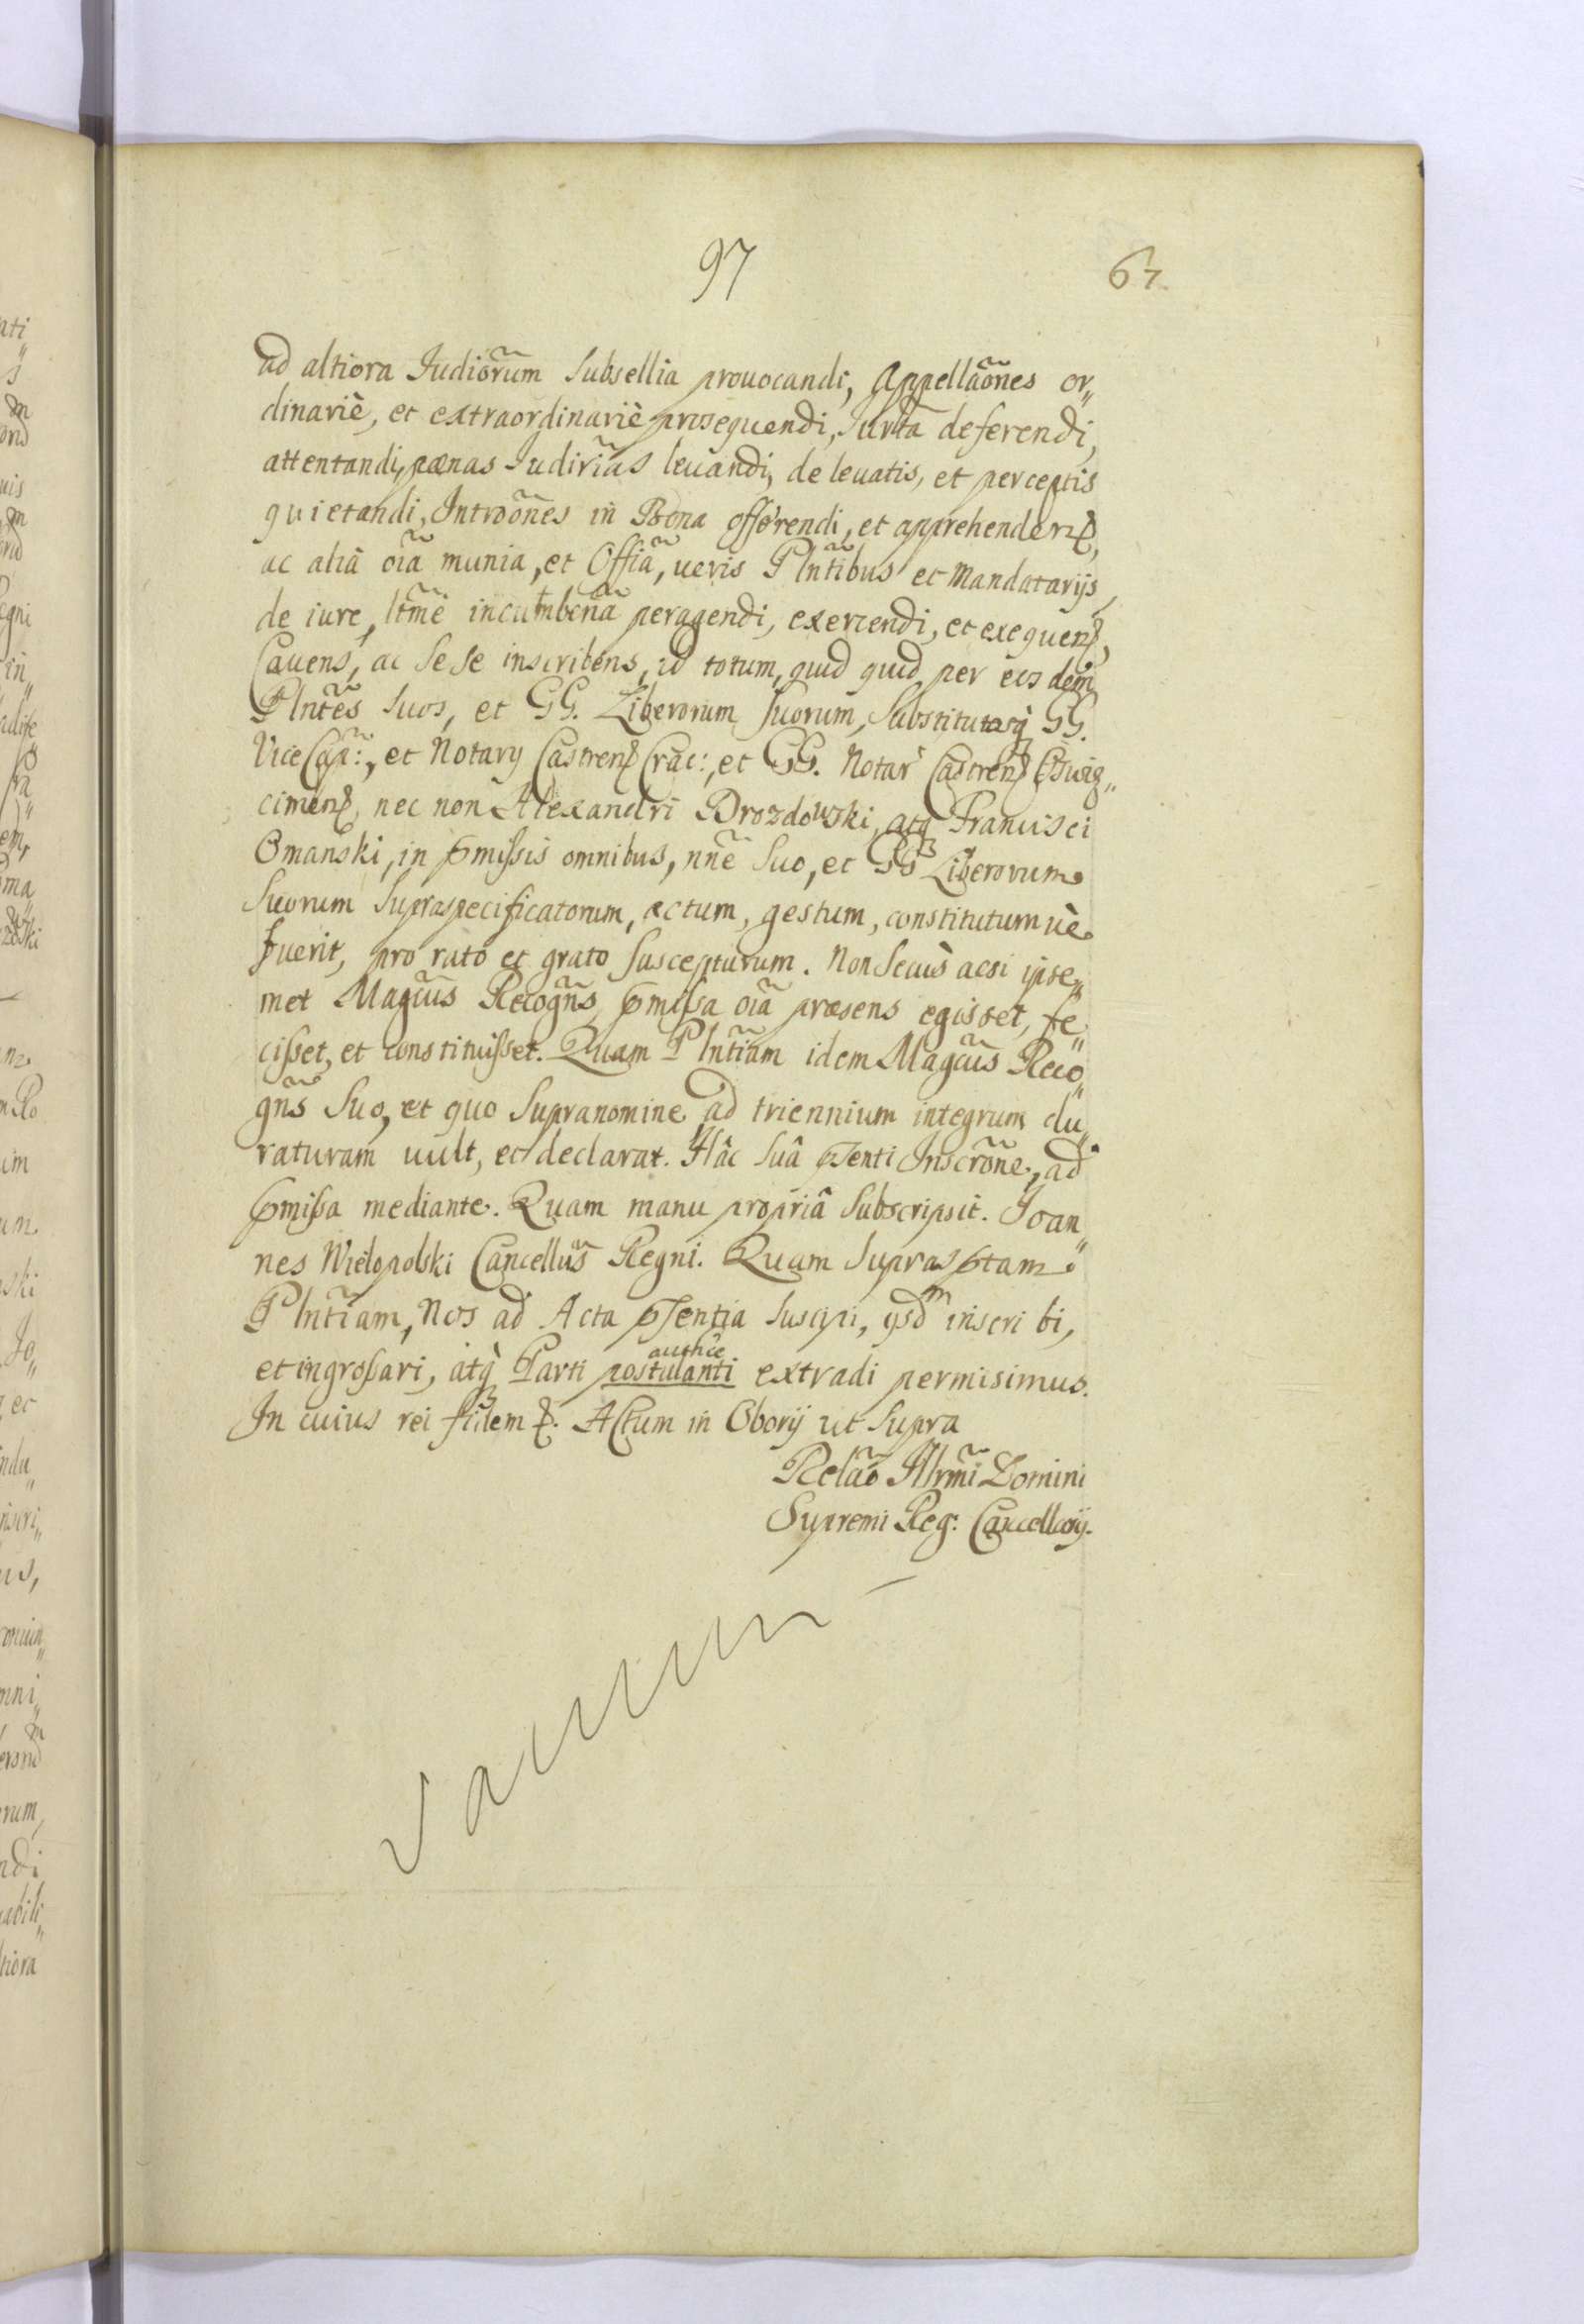 97
67
ad altiora Judiõrum Subsellia prouocandi, Appellãones or„
dinariè, et extraordinariè prosequendi, Jurta deferendi,
attentandi, pœnas Judirĩas leuandi, de leuatis, et perceptis
quietandi, Introõnes in Bona offerendi, et apprehenden͠,
ac aliâ oĩa munia, et Offiã, ueris Plñtibus et Mandatarijs,
de iure, ltm̃e incumbeñã peragendi, exercendi, et exequen͠,
Cauens, ac Se Se inscribens, id totum, quid quid per eos dem
Plñtes Suos, et GG. Liberorum Suorum, Substitutosq̀ GG.
Vice Cap̃:, et Notary Castren͠ Crac:, et GG. Notar̃ Castren͠ Oswig„
cimen͠, nec non Alexandri Drozdowski, atq̀ Francisci
Omanski, in p̃missis omnibus, nñe Suo, et GG Liberorum
Suorum Supraspecificatorum, actum, gestum, constitutumuè
fuerit, pro rato et grato Suscepturum. Non Secùs acsi ipse„
met Magc̃us Recogñs p̃missa oĩa præsens egisset, fe„
cisset, et constituisset. Quam Plñtiam idem Magc̃us Reco„
gñs Suo, et quo Supra nomine ad triennium integrum du„
raturam uult, et declarat. Hâc Suâ p̃senti Inscrõne, ad
p̃missa mediante. Quam manu propriâ Subscripsit. Joan„
nes Wielopolski Cancellũs Regni. Quam Suprasp̃tam
Plñtiam, Nos ad Acta p̃sentia Suscipi, ijsdm inscribi,
et ingrossari, atq̀ Parti authce postulanti extradi permisimus.
In cuius rei fidem &. Actum in Obory ut Supra
Relão Illrmĩ Domini
Supremi Reg: Cancellarij.
Vacuum